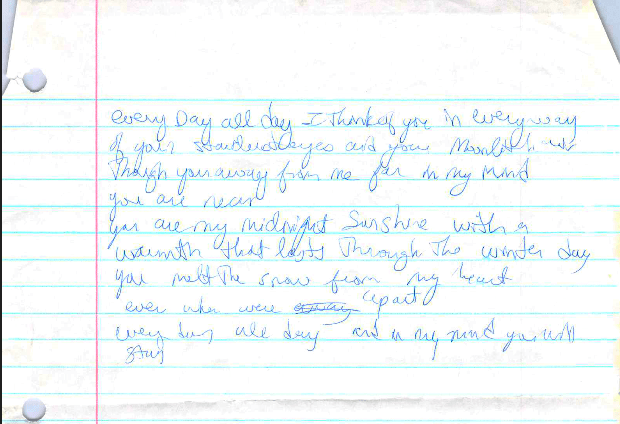 every Day all day I Think of you in every way
of your eyes and your
Though your away from me far in my mind
you are near
you are my midnight Sunshine with a
warmth that lasts Through The winter day
you melt The snow from my heart
even when were apart
every day all day and in my mind you will
stay